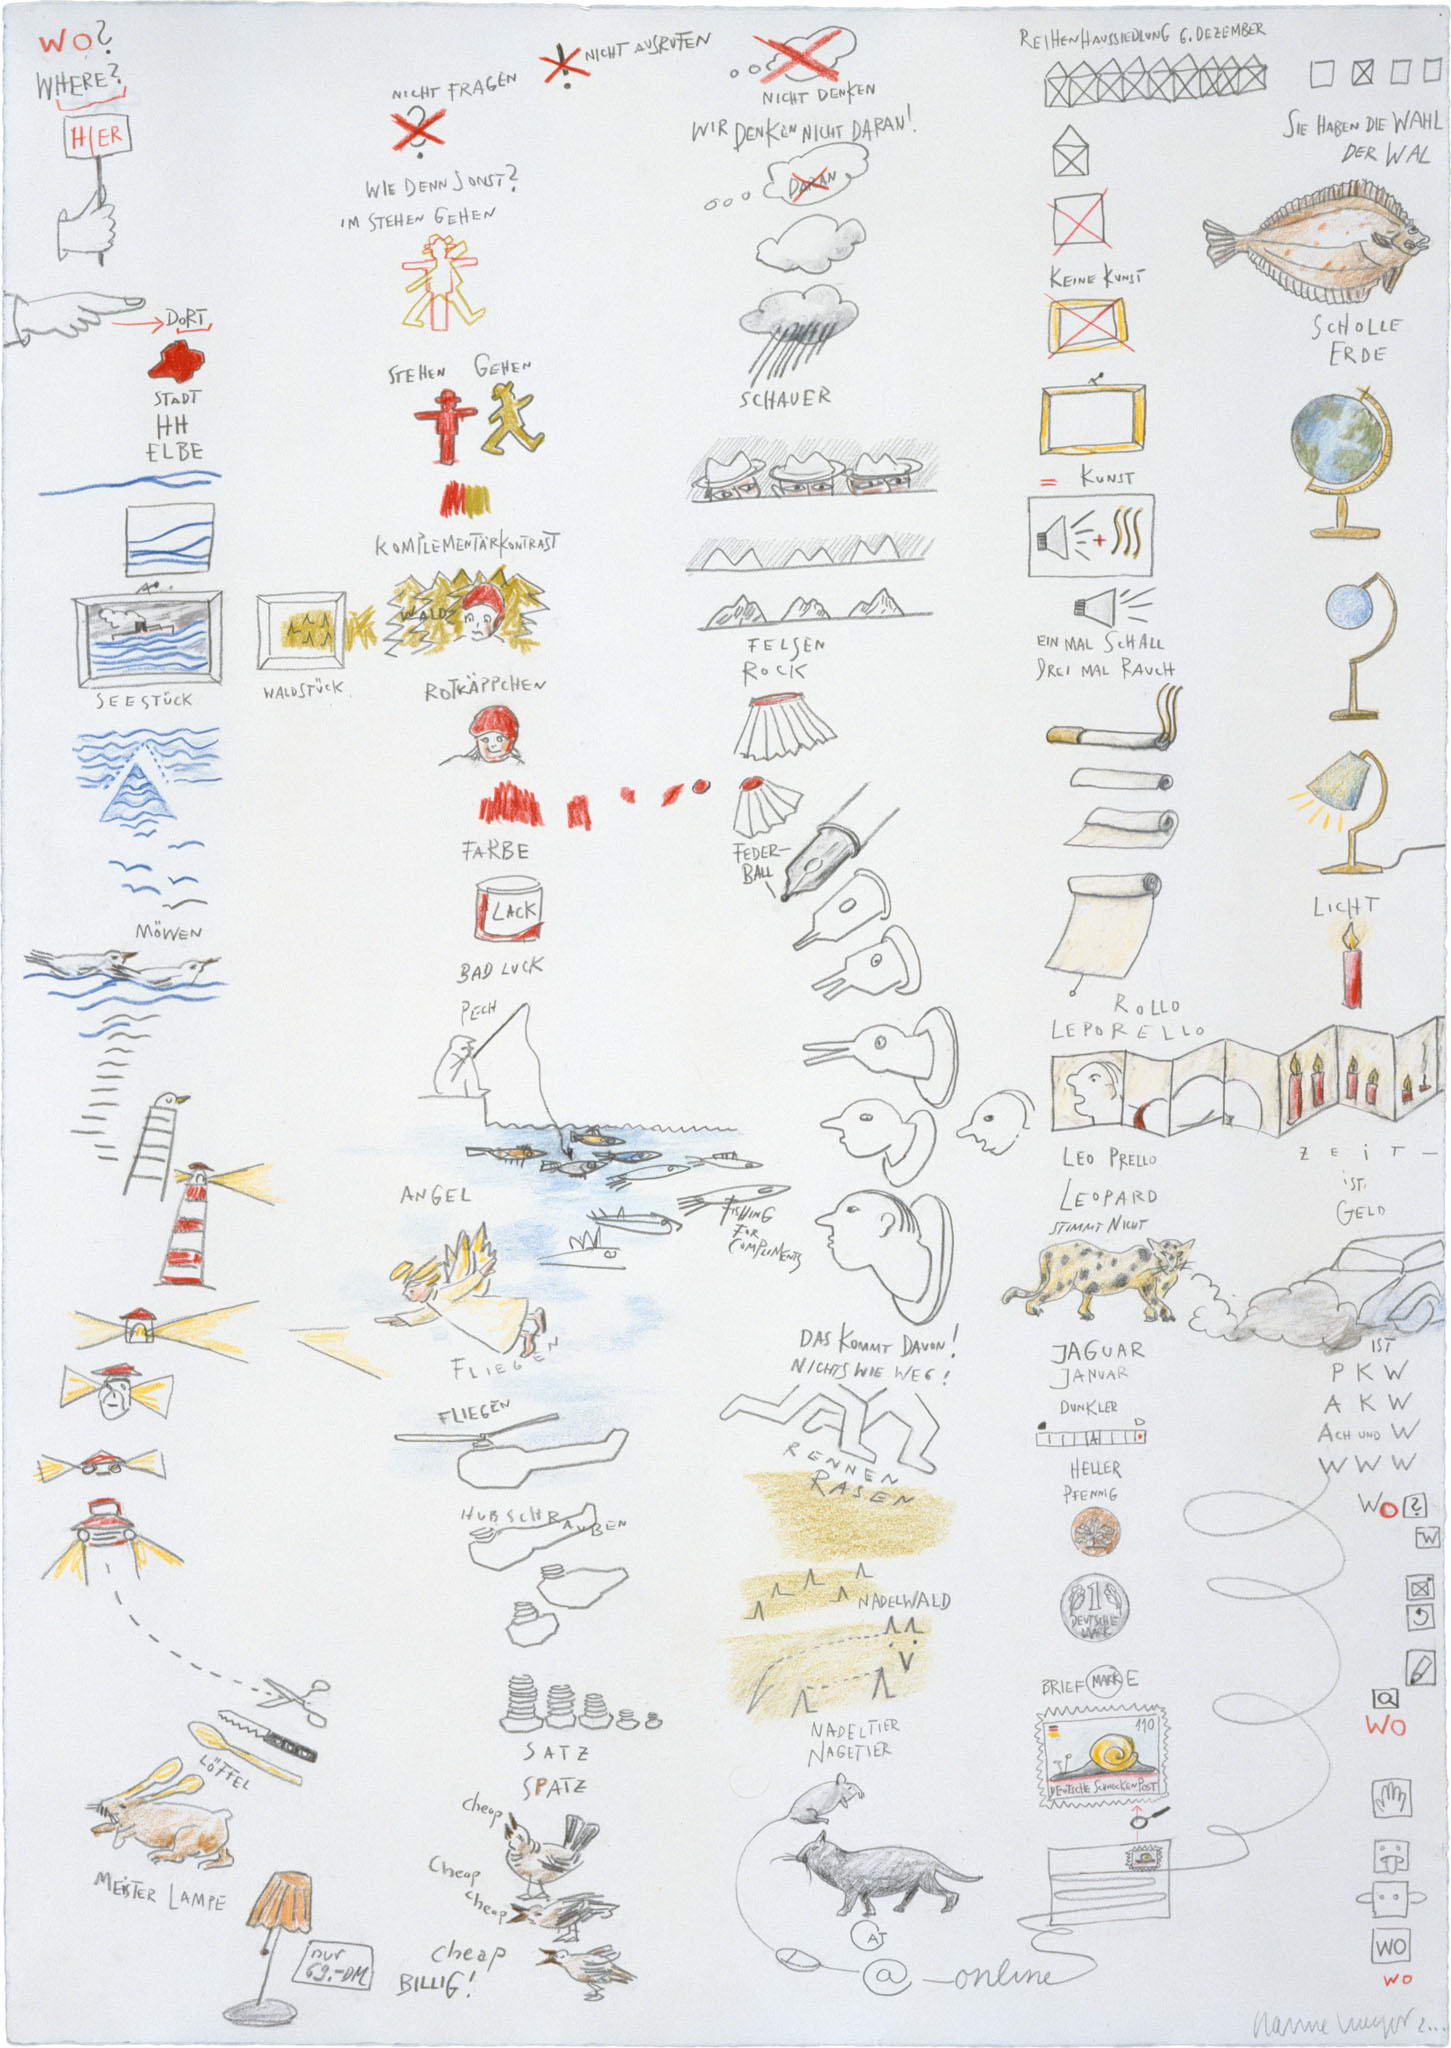 WO?
WHERE?
HIER
DORT
STADT
HH
ELBE
SEESTÜCK
WALDSTÜCK
MÖWEN
LÖFFEL
MEISTER LAMPE
nur
69.-DM
NICHT FRAGEN
NICHT AUSRUFEN
WIE DENN SONST?
IM STEHEN GEHEN
STEHEN GEHEN
KOMPLEMENTÄRKONTRAST
WALD
ROTKÄPPCHEN
FARBE
LACK
BAD LUCK
PECH
ANGEL
FISHING
FOR
COMPLIMENTS
FLIEGEN
FLIEGEN
HUBSCHRAUBEN
SATZ
SPATZ
cheap
cheap
cheap
cheap
BILLIG!
NICHT DENKEN
WIR DENKEN NICHT DARAN!
DARAN
SCHAUER
FELSEN
ROCK
FEDER-
BALL
DAS KOMMT DAVON!
NICHTS WIE WEG!
RENNEN
RASEN
NADELWALD
NADELTIER
NAGETIER
AT
@ online
REIHENHAUSSIEDLUNG 6. DEZEMBER
KEINE KUNST
= KUNST
+
EIN MAL SCHALL
DREI MAL RAUCH
ROLLO
LEPORELLO
LEO PRELLO
LEOPARD
STIMMT NICHT
JAGUAR
JANUAR
DUNKLER
HELLER
PFENNIG
1
DEUTSCHE
MARK
BRIEFMARKE
110
DEUTSCHE SCHNECKENPOST
SIE HABEN DIE WAHL
DER WAL
SCHOLLE
ERDE
LICHT
ZEIT-
IST
GELD
IST
PKW
AKW
ACH UND W
WWW
WO?
FW
WO
WO
WO